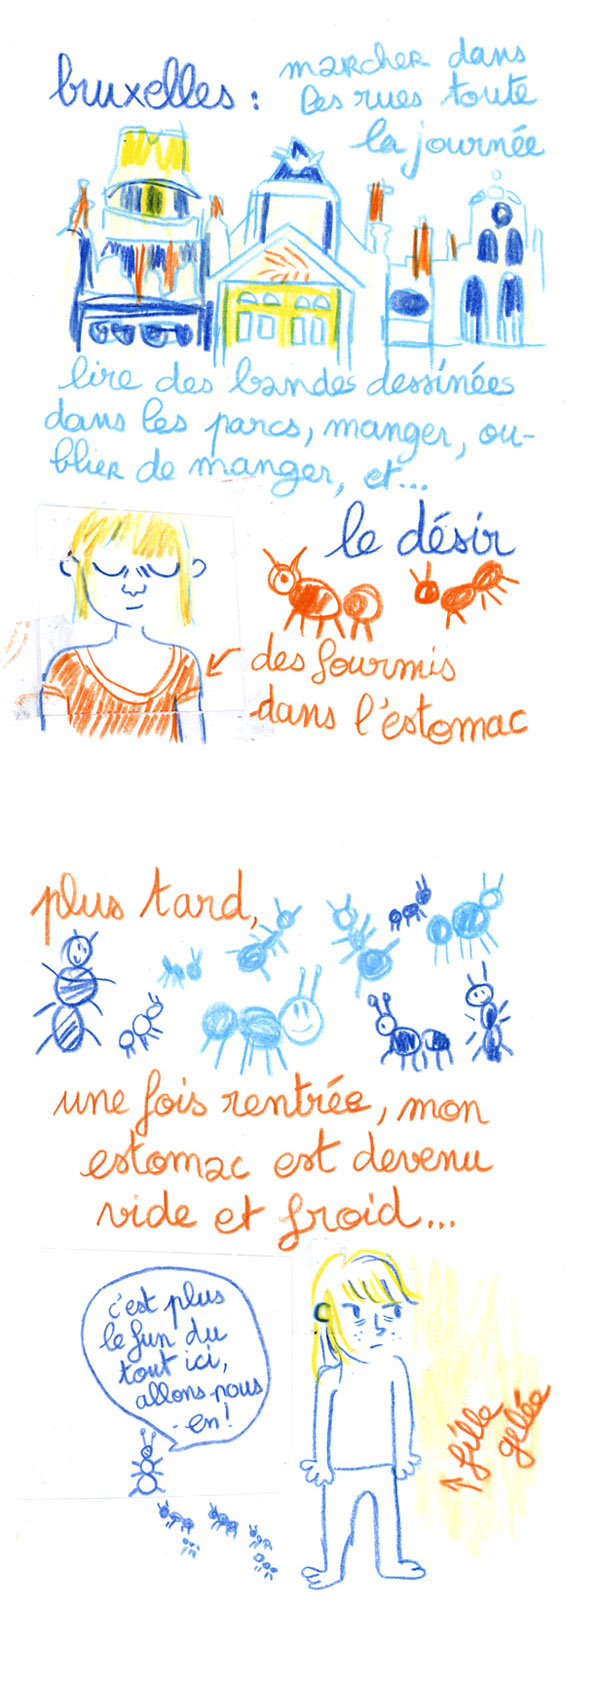 bruxelles : marcher dans
les rues toute
la journée
lire des bandes dessinées
dans les parcs, manger, ou-
blier de manger, et...
le désir
des fourmis
dans l'estomac
plus tard,
une fois rentrée, mon
estomac est devenu
vide et froid...
c'est plus
le fun du
tout ici,
allons-nous
-en !
fille
gelée